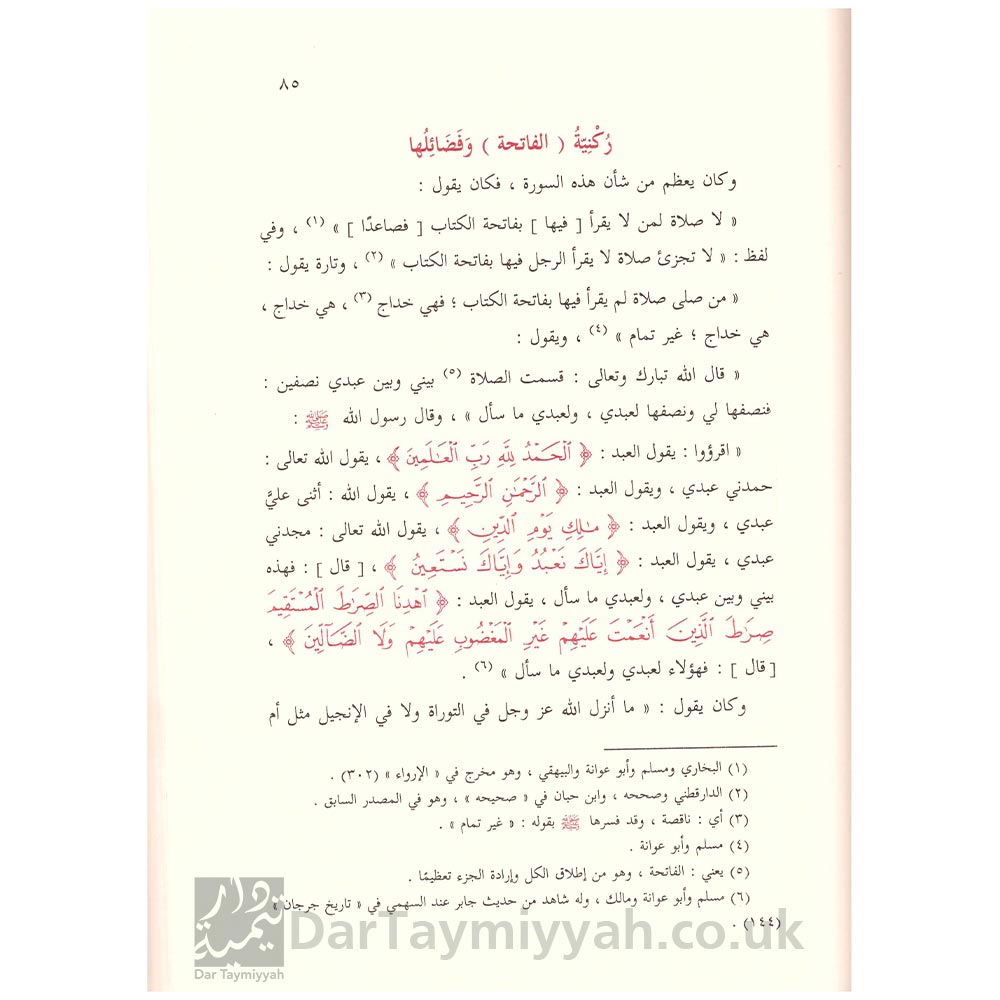 ٨٥
رُكْنِيّةُ ( الفاتحة ) وَفَضَائِلُها
وكان يعظم من شأن هذه السورة ، فكان يقول :
« لا صلاة لمن لا يقرأ [ فيها ] بفاتحة الكتاب [ فصاعدًا ] » (١) ، وفي
لفظ : « لا تجزئ صلاة لا يقرأ الرجل فيها بفاتحة الكتاب » (٢) ، وتارة يقول :
« من صلى صلاة لم يقرأ فيها بفاتحة الكتاب ؛ فهي خداج (٣) ، هي خداج ،
هي خداج ؛ غير تمام » (٤) ، ويقول :
« قال الله تبارك وتعالى : قسمت الصلاة (٥) بيني وبين عبدي نصفين :
فنصفها لي ونصفها لعبدي ، ولعبدي ما سأل » ، وقال رسول الله ﷺ :
« اقرؤوا : يقول العبد : ﴿ ٱلْحَمْدُ لِلَّهِ رَبِّ ٱلْعَـٰلَمِينَ ﴾ ، يقول الله تعالى :
حمدني عبدي ، ويقول العبد : ﴿ ٱلرَّحْمَـٰنِ ٱلرَّحِيمِ ﴾ ، يقول الله : أثنى عليَّ
عبدي ، ويقول العبد : ﴿ مَـٰلِكِ يَوْمِ ٱلدِّينِ ﴾ ، يقول الله تعالى : مجدني
عبدي ، يقول العبد : ﴿ إِيَّاكَ نَعْبُدُ وَإِيَّاكَ نَسْتَعِينُ ﴾ ، [ قال ] : فهذه
بيني وبين عبدي ، ولعبدي ما سأل ، يقول العبد : ﴿ ٱهْدِنَا ٱلصِّرَٰطَ ٱلْمُسْتَقِيمَ
صِرَٰطَ ٱلَّذِينَ أَنْعَمْتَ عَلَيْهِمْ غَيْرِ ٱلْمَغْضُوبِ عَلَيْهِمْ وَلَا ٱلضَّآلِّينَ ﴾ ،
[ قال ] : فهؤلاء لعبدي ولعبدي ما سأل » (٦) .
وكان يقول : « ما أنزل الله عز وجل في التوراة ولا في الإنجيل مثل أم
(١) البخاري ومسلم وأبو عوانة والبيهقي ، وهو مخرج في « الإرواء » (٣٠٢) .
(٢) الدارقطني وصححه ، وابن حبان في « صحيحه » ، وهو في المصدر السابق .
(٣) أي : ناقصة ، وقد فسرها ﷺ بقوله : « غير تمام » .
(٤) مسلم وأبو عوانة .
(٥) يعني : الفاتحة ، وهو من إطلاق الكل وإرادة الجزء تعظيمًا .
(٦) مسلم وأبو عوانة ومالك ، وله شاهد من حديث جابر عند السهمي في « تاريخ جرجان »
(١٤٤) .
دار تيمية
Dar Taymiyyah
DarTaymiyyah.co.uk